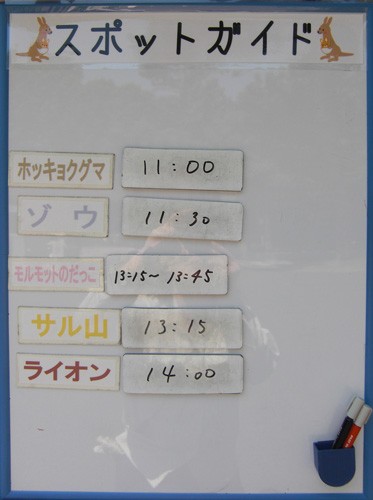 スポットガイド
ホッキョクグマ 11:00
ゾウ 11:30
モルモットのだっこ 13:15~13:45
サル山 13:15
ライオン 14:00